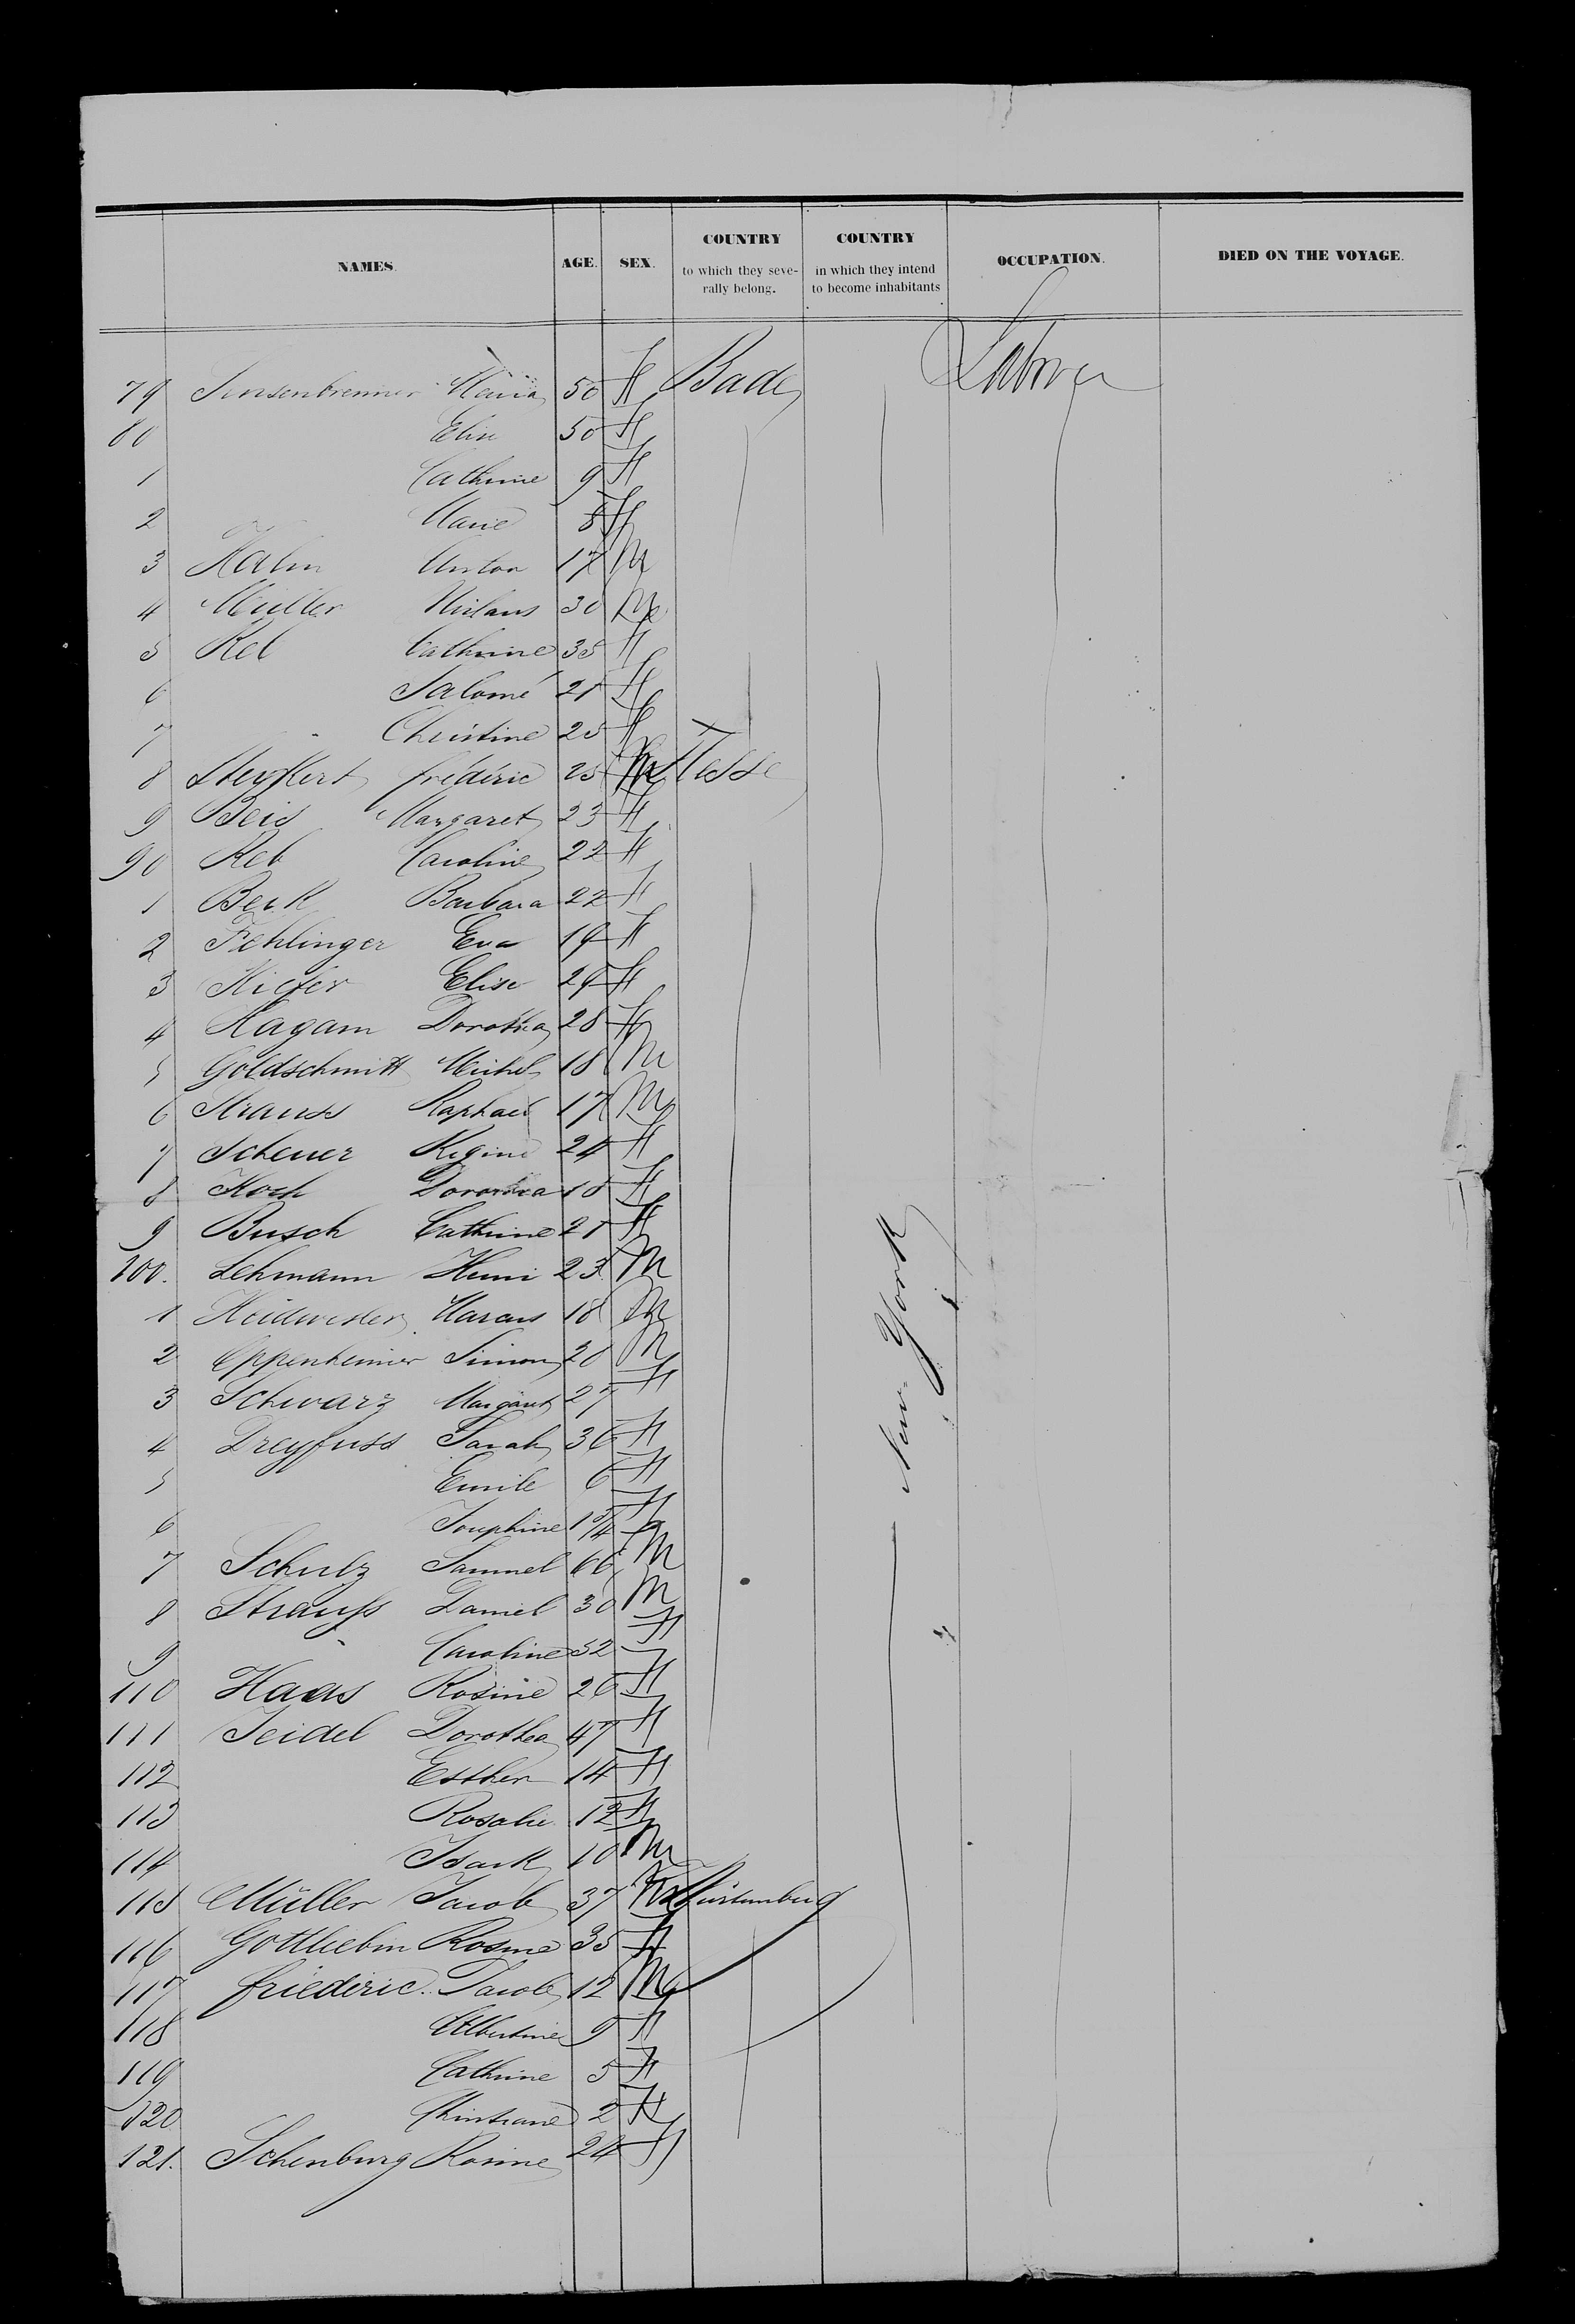 NAMES. AGE. SEX. COUNTRY to which they severally belong. COUNTRY in which they intend to become inhabitants OCCUPATION. DIED ON THE VOYAGE.
79 Sensenbrenner Maria 50 F Bade Labover
80 Elise 50 F
1 Cathrine 9 F
2 Marie 8 F
3 Hahn Anton 17 M
4 Müller Niclaus 30 M
5 Reb Cathrine 35 F
6 Salomé 21 F
7 Christine 25 F
8 frédéric 25 M Hesse
9 Beis Margaret 23 F
90 Reb Caroline 22 F
1 Beck Barbara 22 F
2 Fehlinger Eva 19 F
3 Kiefer Elise 29 F
4 Hagam Dorothea 28 F
5 Goldschmitt Michel 18 M
6 Strauss Raphael 17 M
7 Scheuer Regine 24 F
8 Koch Dorothea 18 F
9 Busch Cathrine 21 F
100. Lehmann Henri 23 M
1 Marcus 18 M
2 Oppenheimer Simon 20 M
3 Schwarz Margaret 27 F
4 Dreyfuss Sarah 36 F
5 Emile 6 F
6 Josephine 1 3/4 F
7 Schulz Samuel 66 M
8 Strauss Daniel 30 M
9 Caroline 32 F
110 Haas Rosine 26 F
111 Seidel Dorothea 47 F
112 Esther 14 F
113 Rosalie 12 F
114 Isack 10 M
115 Müller Jacob 37 M Würtemberg
116 Gottliebin Rosine 35 F
117 friederic Jacob 12 M
118 Albertine 9 F
119 Cathrine 5 F
120 Christiane 2 F
121. Schenburg Rosine 24 F
New-York